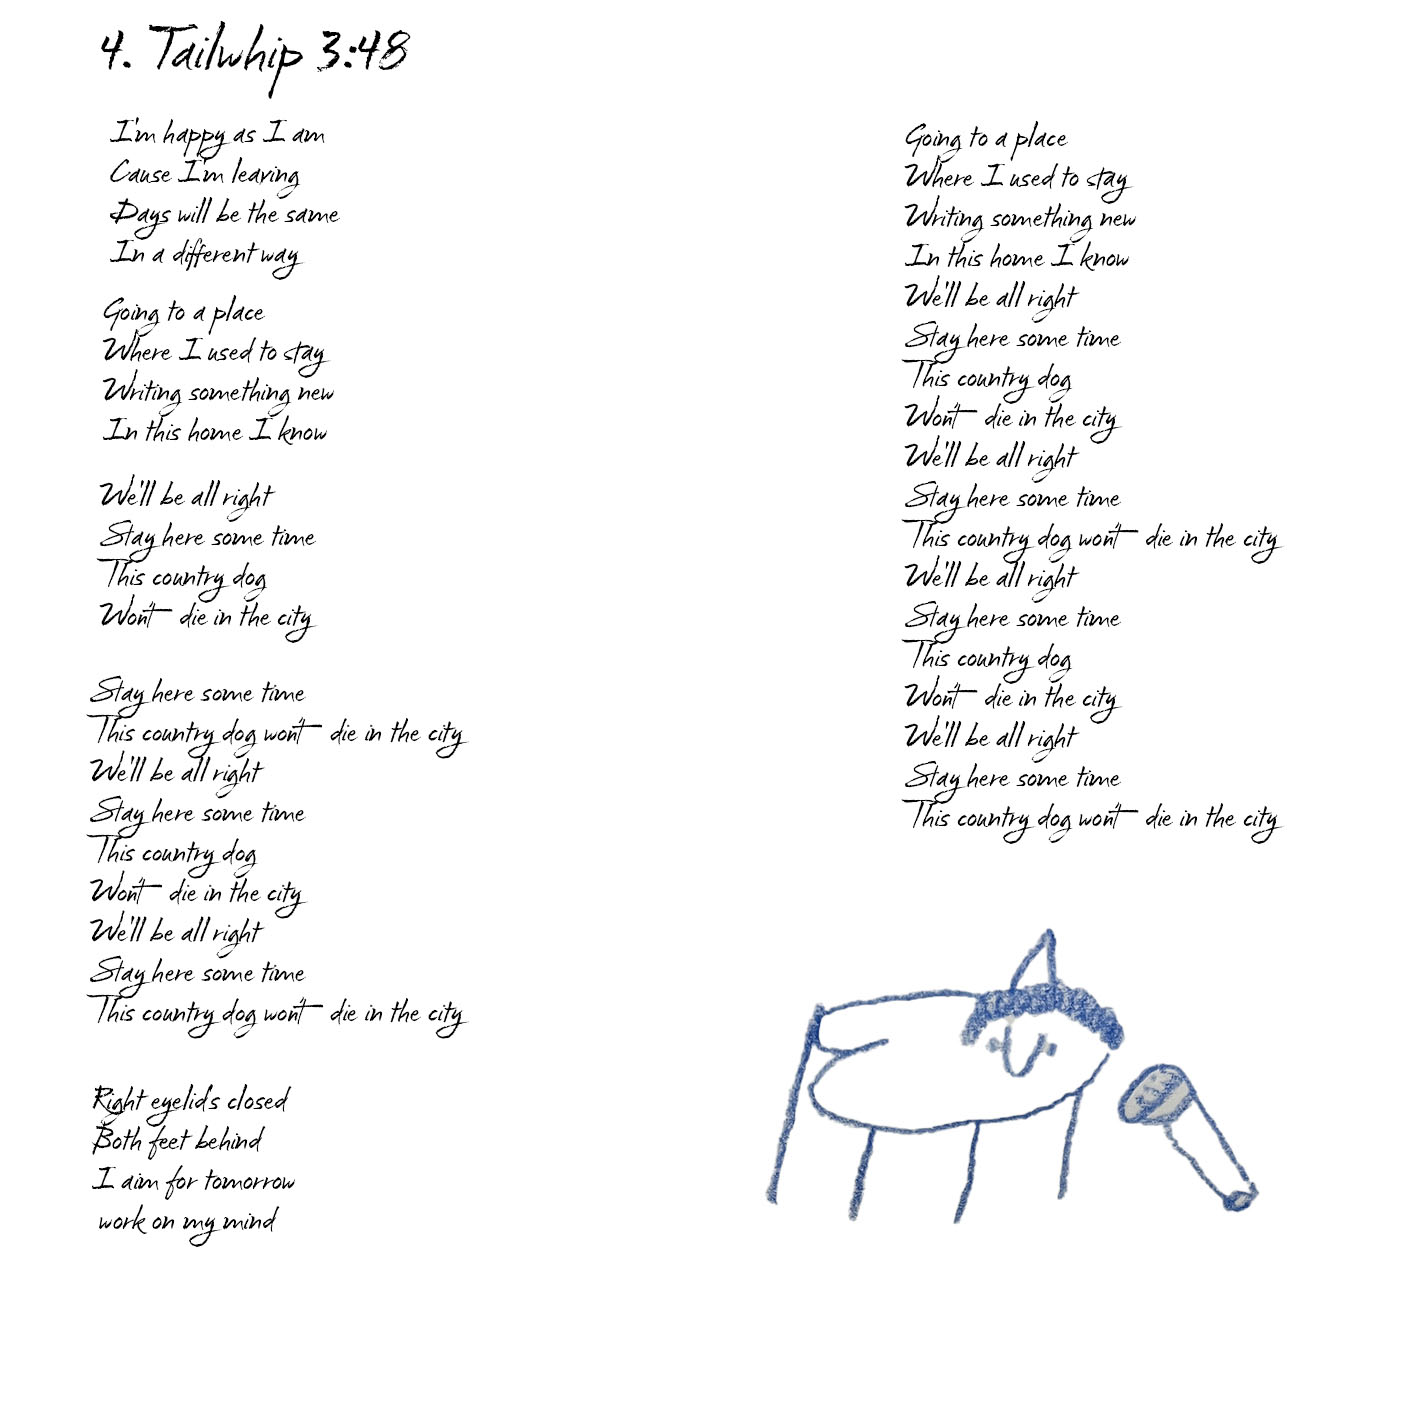 4. Tailwhip 3:48
I'm happy as I am
Cause I'm leaving
Days will be the same
In a different way
Going to a place
Where I used to stay
Writing something new
In this home I know
We'll be all right
Stay here some time
This country dog
Won't die in the city
Stay here some time
This country dog won't die in the city
We'll be all right
Stay here some time
This country dog
Won't die in the city
We'll be all right
Stay here some time
This country dog won't die in the city
Right eyelids closed
Both feet behind
I aim for tomorrow
work on my mind
Going to a place
Where I used to stay
Writing something new
In this home I know
We'll be all right
Stay here some time
This country dog
Won't die in the city
We'll be all right
Stay here some time
This country dog won't die in the city
We'll be all right
Stay here some time
This country dog
Won't die in the city
We'll be all right
Stay here some time
This country dog won't die in the city